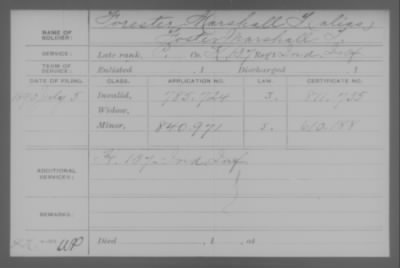 NAME OF SOLDIER: Forester, Marshall F. (alias)
Foster, Marshall
SERVICE: Late rank, P. Co. K, 137 Reg't Ind. Inf.
TERM OF SERVICE: Enlisted , 1 Discharged , 1
DATE OF FILING. CLASS. APPLICATION NO. LAW. CERTIFICATE NO.
July 5 Invalid, 785.724 811.735
Widow,
Minor, 840.971 610.188
ADDITIONAL SERVICES: 137 Ind Inf
REMARKS:
Died , 1 , at